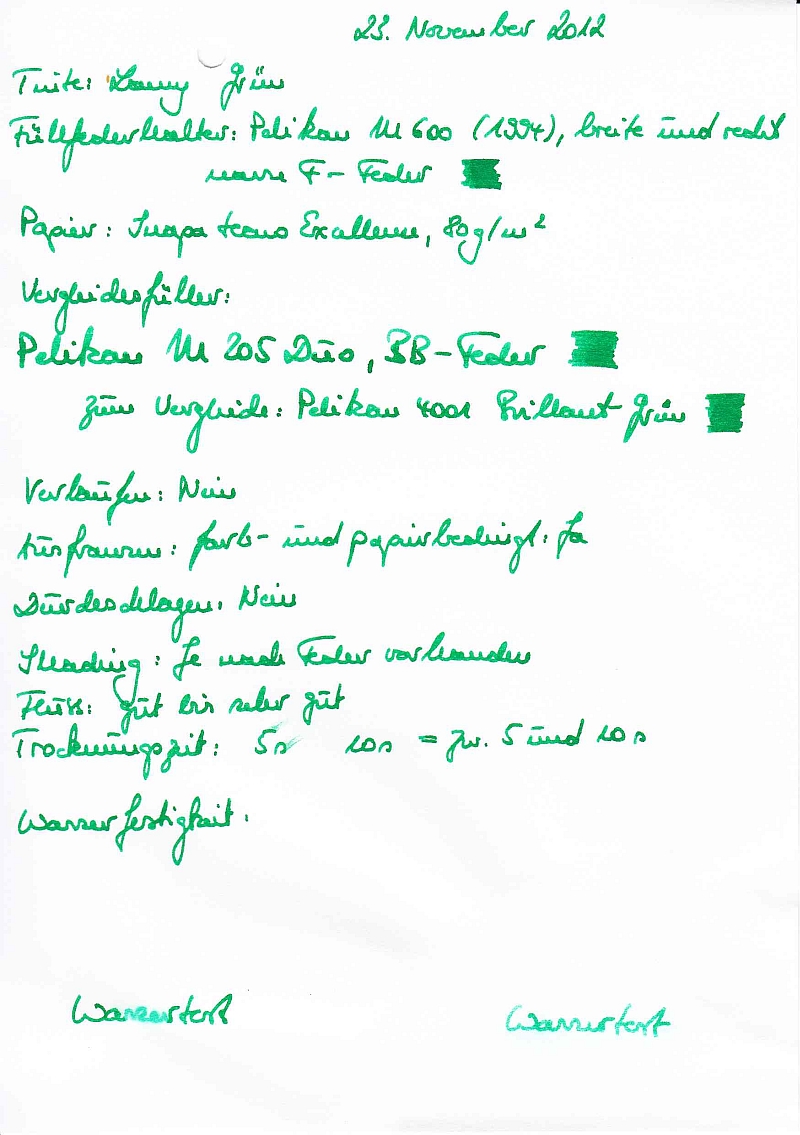 23. November 2012
Tinte: Lamy Grün
Füllfederhalter: Pelikan M 600 (1994), breite und recht
nasse F-Feder
Papier: Inapa tecno Excellence, 80g/m²
Vergleichsfüller:
Pelikan M 205 Duo, BB-Feder
zum Vergleich: Pelikan 4001 Brillant-Grün
Verlaufen: Nein
Ausfransen: farb- und papierbedingt: Ja
Durchschlagen: Nein
Shading: Je nach Feder vorhanden
Fluss: gut bis sehr gut
Trocknungszeit: 5s 10s = zw. 5 und 10s
Wasserfestigkeit:
Wassertest Wassertest